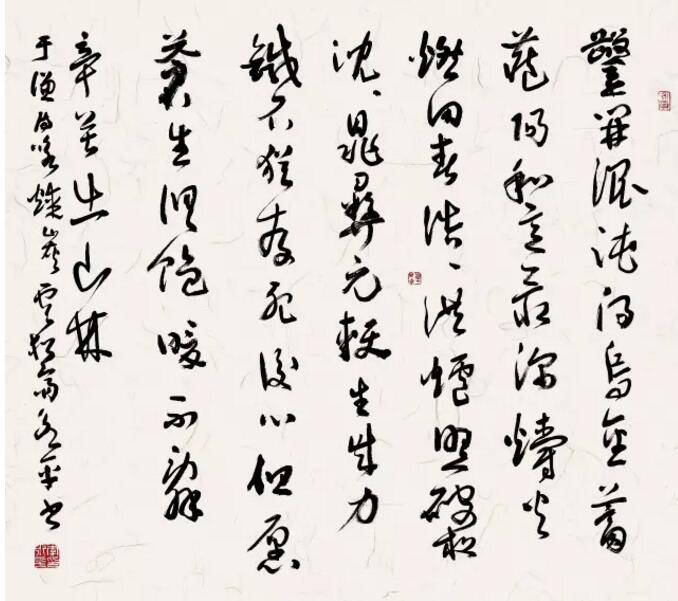 鑿開混沌得烏金蓄
藏陽和意最深爝火
燃回春浩、洪爐照破夜
沈、鼎彝元賴生成力
鐵石猶存死後心但愿
蒼生俱飽暖不辭
辛苦出山林
于謙詩咏煤炭 書